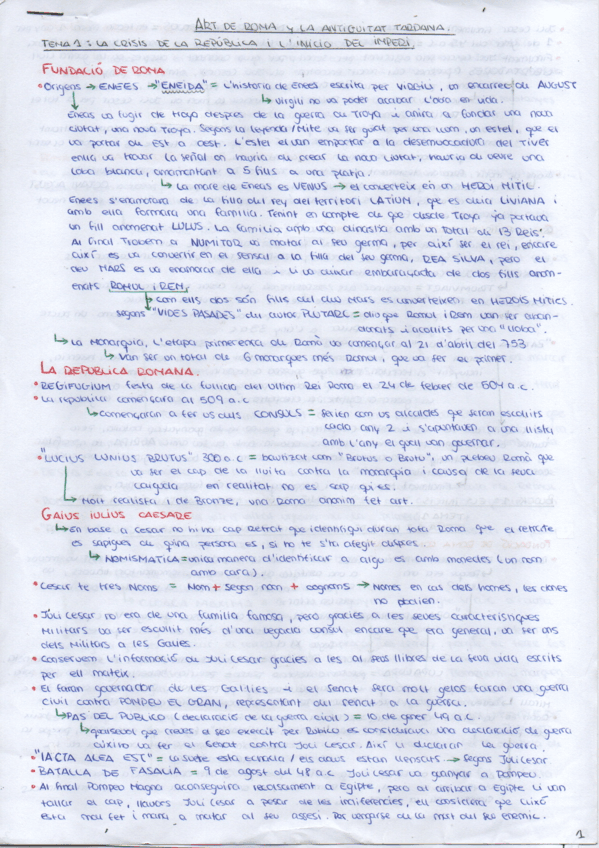 ART DE ROMA y LA ANTIGUITAT TARDANA.
TEMA 1: LA CRISIS DE LA REPÚBLICA I L'INICIO DEL IMPERI.
FUNDACIÓ DE ROMA
• Orígens → ENEES → "ENEIDA" = L'historia de Enees escrita per VIRGILI, un encarrec du AUGUST
↳ Virgili no va poder acabar l'obra en vida.
Eneas va fugir de troya despres de la guerra du Troya i anira a fundar una nova
ciutat, una nova Troya. Segons la leyenda/Mite va ser guiat per una llum, un estel, que el
va portar du est a oest. L'estel el van emportar a la desenvocadura del TIVER
enlla va trovar la señal on hauria du crear la nova ciutat, hauria du veure una
Loba blanca, amamantant a 5 fills a una platja.
↳ La mare de Eneas es VENUS → el converteix en un HEROI MITIC.
Enees s'enamorara de la filla del rey del territori LATIUM, que es duia LIVIANA i
amb ella formara una familia. Tenint en compte du que desde Troya ja portava
un fill anomenat LULUS. La familia amb una dinastia amb un total du 13 REIS.
Al final Trobem a NUMITOR va matar al seu germa, per així ser el rei, encare
cuixí es va convertir en el sensal a la filla del seu germa, REA SILVA, pero el
deu MARS es va enamorar de ella i li va duixar embaraçada de dos fills anom-
enats ROMUL i REM.
↳ com ells dos són fills du deu Mars es converteixen en HEROIS MITICS.
segons "VIDES PASADES" du autor PLUTARC = diu que Romul i Rem van ser aban-
donats i acollits per una "lloba".
↳ La Monarquia, L'etapa primerenca du Roma va començar al 21 d'abril del 753
↳ Van ser un total de 6 monarques més Romul, que va fer el primer.
LA REPÚBLICA ROMANA.
• REGIFUGIUM festa de la fullicio del ultim Rei Roma el 24 de febrer de 509 a.c.
• La republica començara al 509 a.c
↳ començaran a fer us duls CONSULS = serien com us alcaldes que seran escollits
cada any 2 i s'apuntaven a una llista
amb l'any el qual van governar.
• "LUCIUS IUNIUS BRUTUS" 300 a.c = bautizat com "Brutus o Brutu", un plebeu Romà que
va ser el cap de la lluita contra la monarquia i causa de la seua
caiguda en realitat no es sap qui es.
↳ Molt realista i de Bronze, una Roma anonim fet art.
GAIUS IULIUS CAESARE
↳ En base a Cesar no hi ha cap Retrat que identifiqui duran tota Roma que el retrate
es sapigues du quina persona es, si no te s'ha afegit dupres.
↳ NOMISMATICA = unica manera d'identificar a algu es amb monedes (un nom
amb cara).
• Cesar te tres Noms = Nom + Segon nom + cognoms → Nomes en cas dels homes, les dones
no podien.
• Juli Cesar no era de una familia famosa, pero gracies a les seves caracteristiques
Militars va ser escullit més d'una vegada consul encare que era general, va ser uns
dels Militars a les Galies.
• Conservem l'informació du Juli Cesar gracies a les al seus llibres de la seua vida escrits
per ell mateix.
• El faran governador de les Gallies i el senat sera molt gelos faran una guerra
civil contra POMPEU EL GRAN, representant dul senat a la guerra.
↳ PAS DEL PUBLICO (declaració de la guerra civil) = 10 de giner 49 a.c.
↳ qualsevol que creues a seu exercit per Rubico es considerava una declaració du guerra
aixina va fer el Senat contra Juli Cesar. Així li declarar la guerra.
• "IACTA ALEA EST" = La suerte esta echada / els daus estan llensats → Segons Juli Cesar.
• BATALLA DE FASALIA = 9 de agost dul 48 a.c Juli Cesar va guanyar a Pompeu.
• Al final Pompeu Magno aconseguira recolsament a Egipte, pero al arribar a Egipte li van
tallar el cap, llavors Juli Cesar a pesar de les indiferencies, ell considera que cuixí
esta mal fet i mana a matar al seu assesi. Per vengarse du la mort del seu enemic.
1